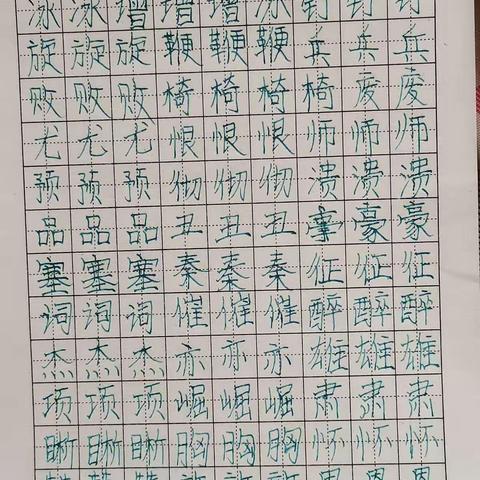 泳泳增增增泳钉钉钉
旋旋旋鞭鞭鞭兵兵兵
败败败椅椅椅椅废废
尤尤尤恨恨恨师师师
预预预彻彻彻溃溃溃
品品品丑丑丑豪豪
塞塞塞秦秦秦征征征
词词词催催催醉醉醉
杰杰杰亦亦亦雄雄雄
项项项崛崛崛肃肃肃
晰晰晰胸胸胸怀怀怀
恩恩恩